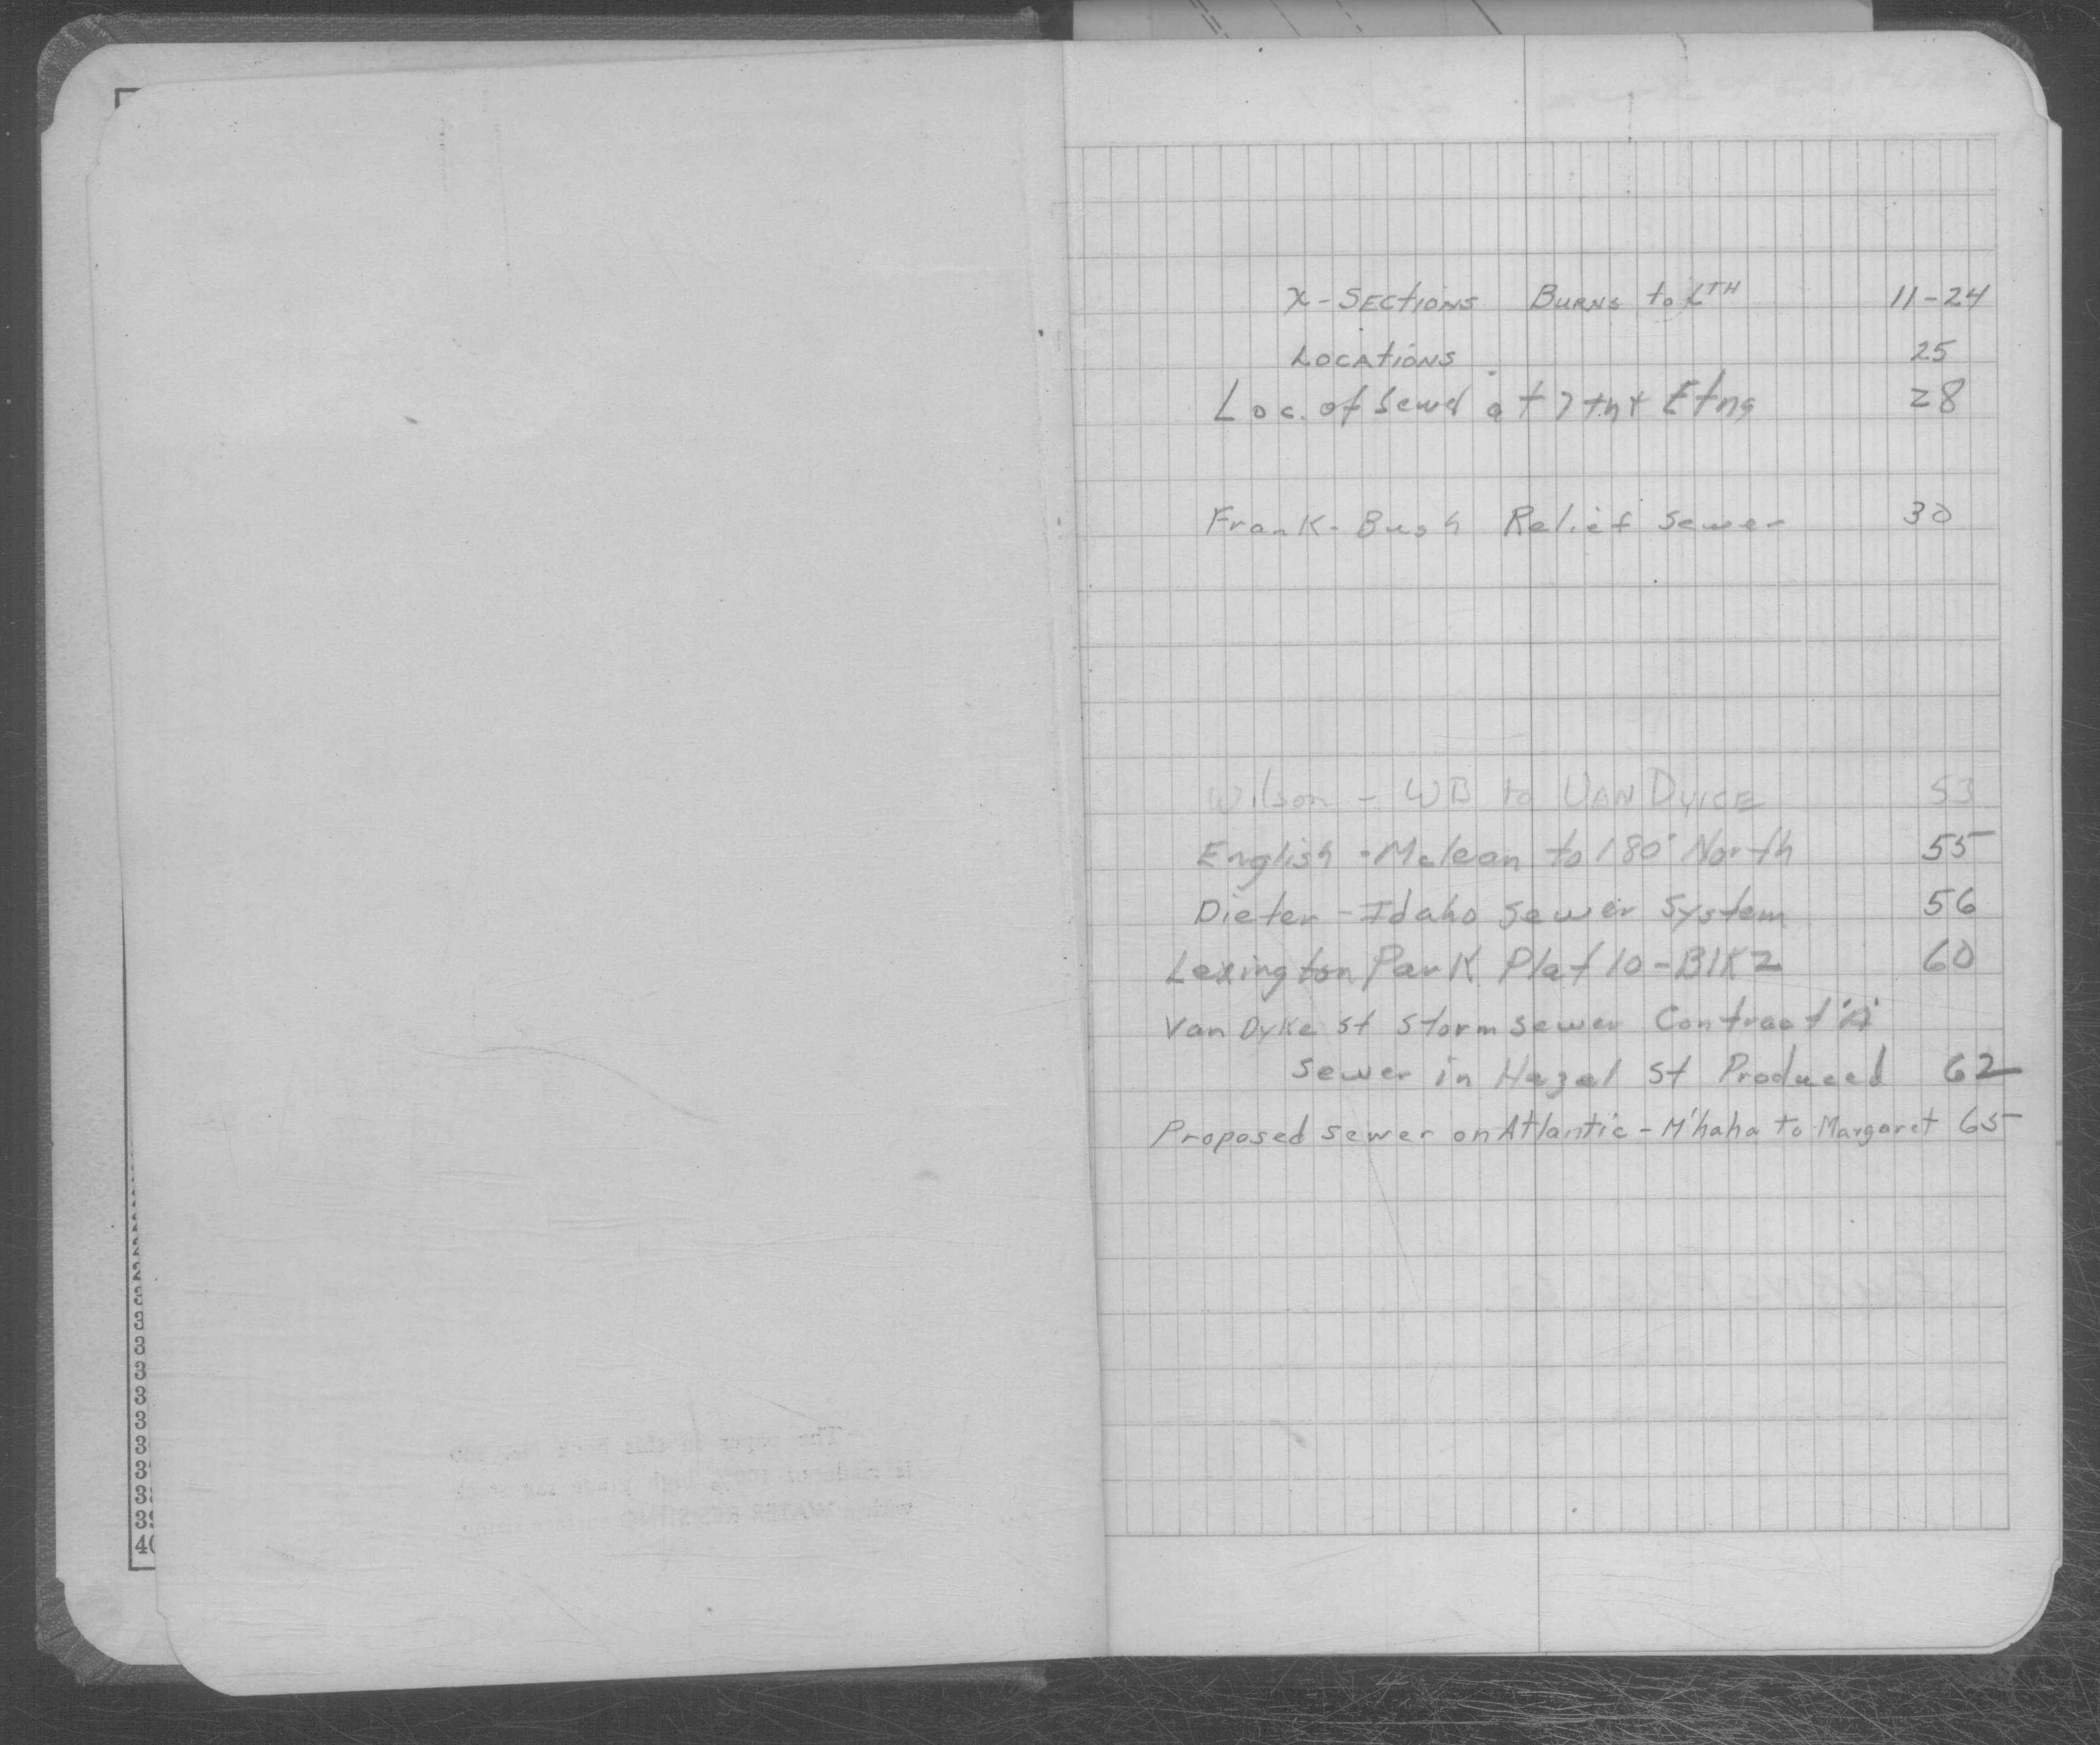 X-SECTIONS BURNS to 6TH 11-24
LOCATIONS 25
Loc. of Sewer at 7th + Etna 28
Frank-Bush Relief Sewer 30
Wilson - WB to VAN DYKE 53
English - Mclean to 180' North 55
Dieter-Idaho Sewer System 56
Lexington Park Plat 10-Blk 2 60
Van Dyke St Storm Sewer Contract "A"
Sewer in Hazel St Produced 62
Proposed sewer on Atlantic - M'haha to Margaret 65
3
3
3
3
3
3
3
3
3
40